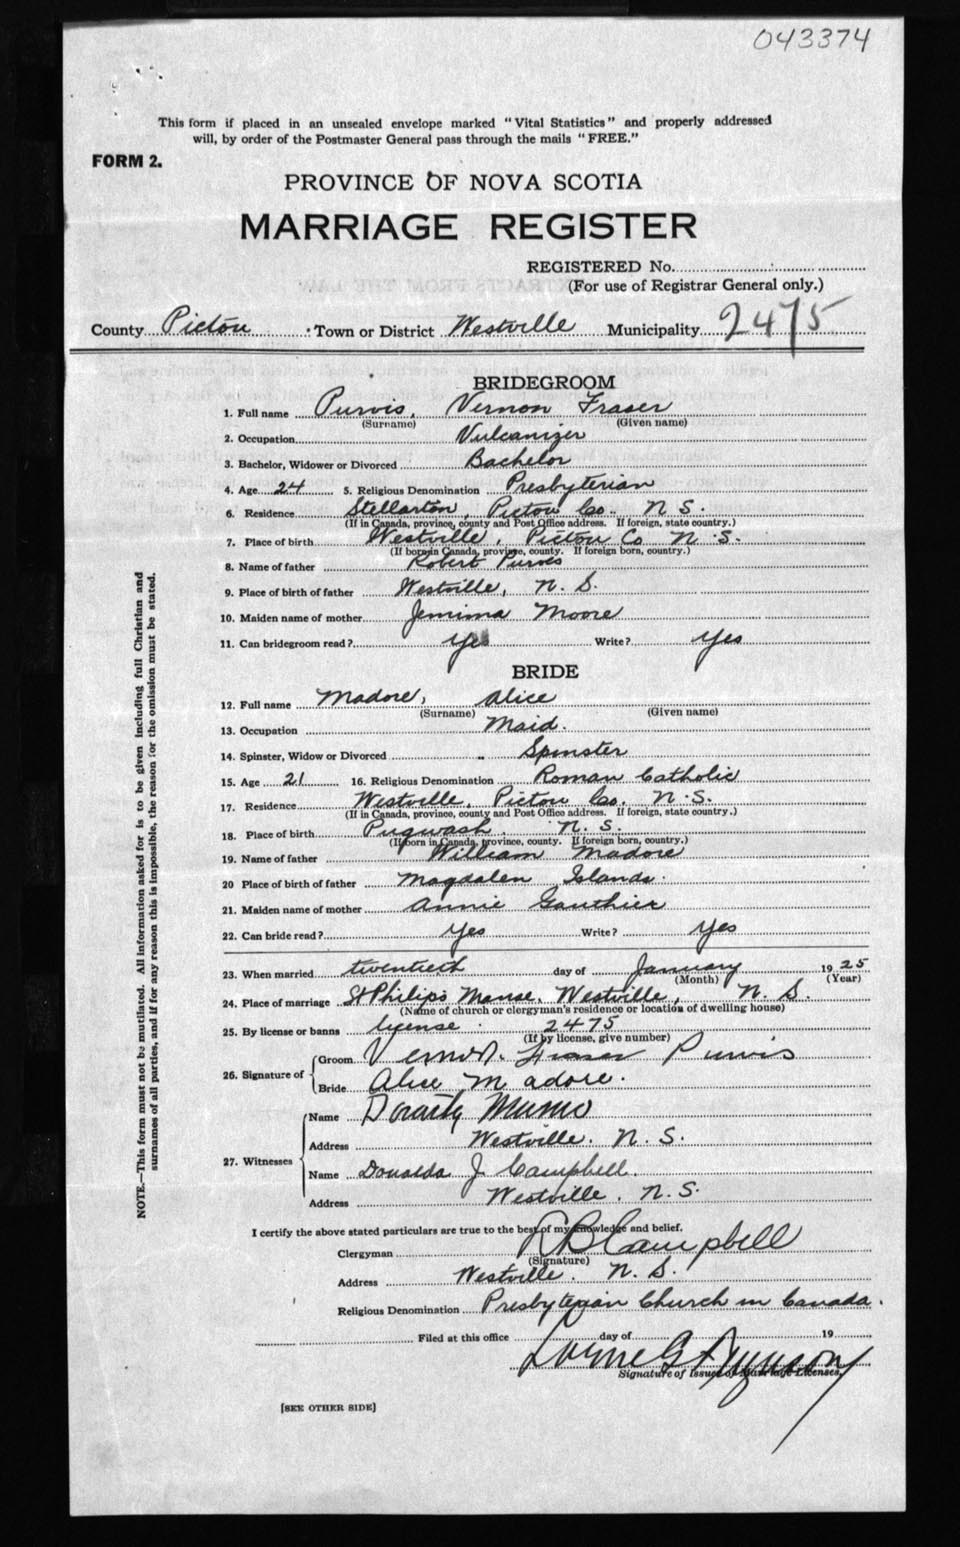 043374
This form if placed in an unsealed envelope marked "Vital Statistics" and properly addressed
will, by order of the Postmaster General pass through the mails "FREE."
FORM 2.
PROVINCE OF NOVA SCOTIA
MARRIAGE REGISTER
REGISTERED No.
(For use of Registrar General only.)
County Pictou Town or District Westville Municipality 2475
BRIDEGROOM
1. Full name Purvis, Vernon Fraser
(Surname) (Given name)
2. Occupation Vulcanizer
3. Bachelor, Widower or Divorced Bachelor
4. Age 24 5. Religious Denomination Presbyterian
6. Residence Stellarton, Pictou Co. N. S.
(If in Canada, province, county and Post Office address. If foreign, state country.)
7. Place of birth Westville, Pictou Co N. S.
(If born in Canada, province, county. If foreign born, country.)
8. Name of father Robert Purvis
9. Place of birth of father Westville, N. S.
10. Maiden name of mother Jemima Moore
11. Can bridegroom read? Yes Write? Yes
BRIDE
12. Full name Madore, Alice
(Surname) (Given name)
13. Occupation Maid.
14. Spinster, Widow or Divorced Spinster
15. Age 21 16. Religious Denomination Roman Catholic
17. Residence Westville, Pictou Co. N. S.
(If in Canada, province, county and Post Office address. If foreign, state country.)
18. Place of birth Pugwash, N. S.
(If born in Canada, province, county. If foreign born, country.)
19. Name of father William Madore
20 Place of birth of father Magdalen Islands.
21. Maiden name of mother Annie Gauthier
22. Can bride read? Yes Write? Yes
23. When married twentieth day of January 1925
(Month) (Year)
24. Place of marriage St Philips Manse, Westville, N. S.
(Name of church or clergyman's residence or location of dwelling house)
25. By license or banns lycense. 2475
(If by license, give number)
26. Signature of
Groom Vernon Fraser Purvis
Bride Alice Madore.
27. Witnesses
Name Dorothy Munro
Address Westville. N. S.
Name Donalda J Campbell.
Address Westville. N. S.
I certify the above stated particulars are true to the best of my knowledge and belief.
Clergyman R B Campbell
(Signature)
Address Westville. N. S.
Religious Denomination Presbyterian Church in Canada.
Filed at this office day of 19
Signature of Issuer of Marriage Licenses.
[SEE OTHER SIDE]
NOTE.—This form must not be mutilated. All information asked for is to be given including full Christian and
surnames of all parties, and if for any reason this is impossible, the reason for the omission must be stated.